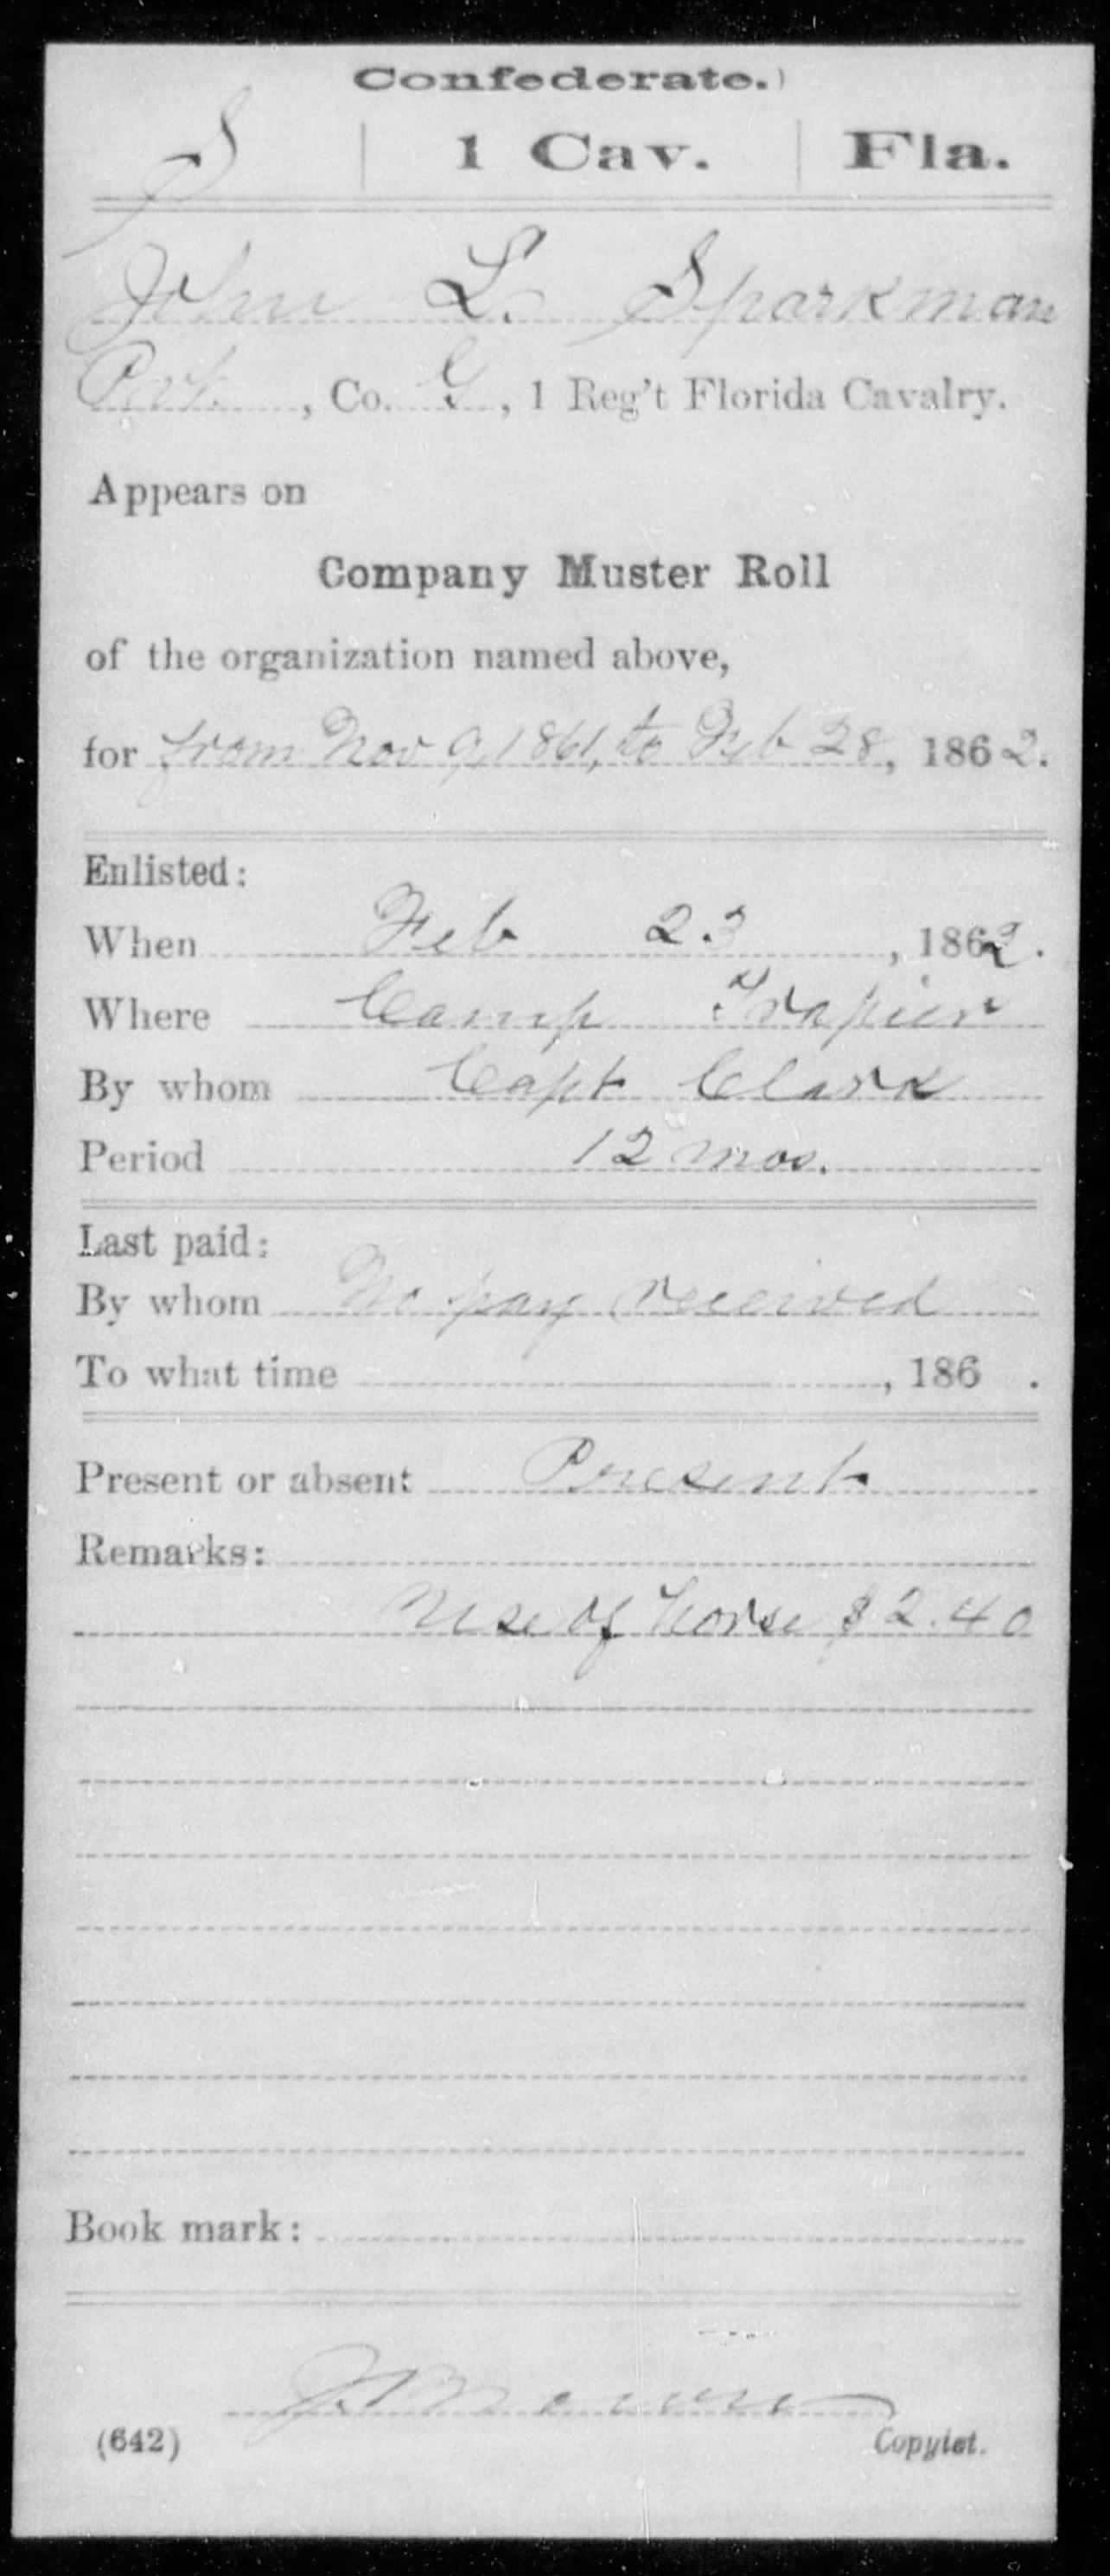 Confederate.)
S | 1 Cav. | Fla.
John L. Sparkman
Pvt., Co. G, 1 Reg't Florida Cavalry.
Appears on
Company Muster Roll
of the organization named above,
for from Nov 9, 1861, to Feb 28, 1862.
Enlisted:
When Feb 23, 1862.
Where Camp Trapier
By whom Capt Clark
Period 12 mos.
Last paid:
By whom No pay received
To what time , 186 .
Present or absent Present
Remarks:
Use of horse $2.40
Book mark:
(642) Copyist.